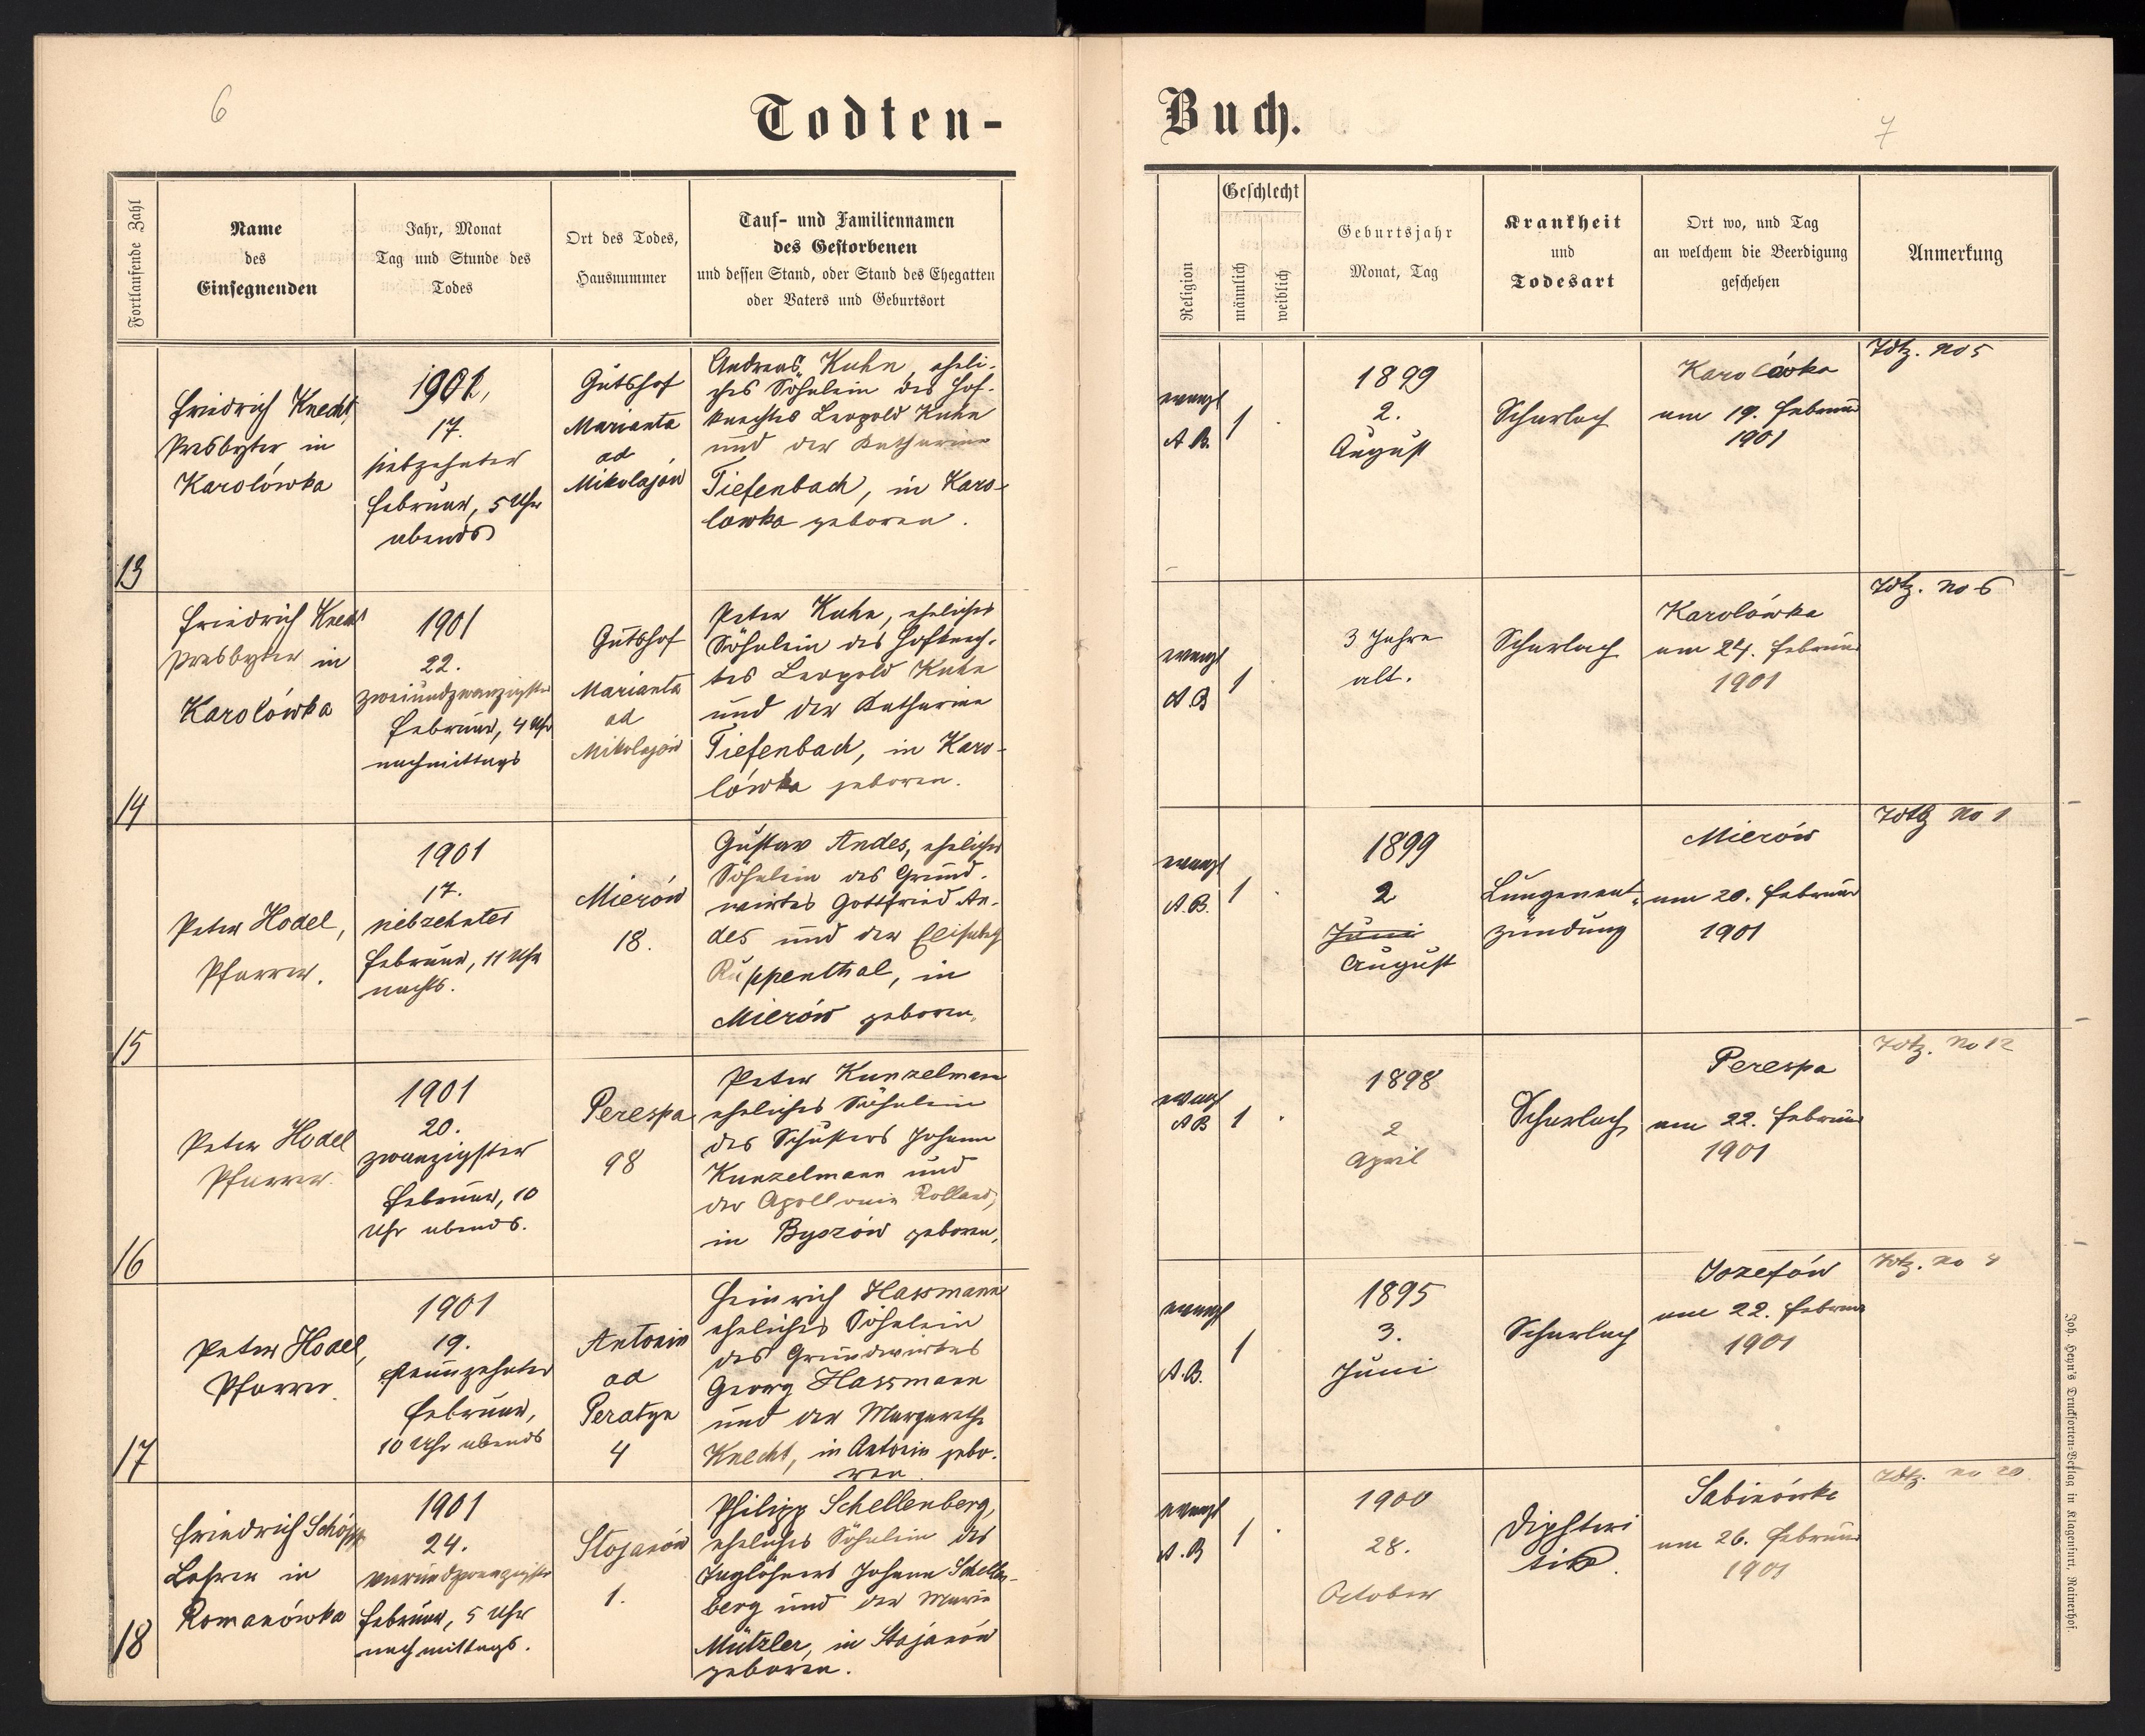 6
Todten-
Fortlaufende Zahl
Name
des
Einsegnenden
Jahr, Monat
Tag und Stunde des
Todes
Ort des Todes,
Hausnummer
Tauf- und Familiennamen
des Gestorbenen
und dessen Stand, oder Stand des Ehegatten
oder Vaters und Geburtsort
13
Friedrich Knecht,
Presbyter in
Karolówka
1901,
17.
siebzehnter
Februar, 5 Uhr
abends
Gutshof
Marianka
ad
Mikolajów
Andreas Kuhn, eheli-
ches Söhnlein des Hof-
knechtes Leopold Kuhn
und der Katharina
Tiefenbach, in Karo-
lowka geboren.
14
Friedrich Knecht
Presbyter in
Karolówka
1901
22.
zweiundzwanzigster
Februar, 4 Uhr
nachmittags
Gutshof
Marianka
ad
Mikolajów
Peter Kuhn, eheliches
Söhnlein des Hofknech-
tes Leopold Kuhn
und der Katharina
Tiefenbach, in Karo-
lówka geboren.
15
Peter Hodel,
Pfarrer.
1901
17.
siebzehnter
Februar, 11 Uhr
nachts.
Mierów
18.
Gustav Andes, eheliches
Söhnlein des Grund-
wirtes Gottfried An-
des und der Elisabeth
Ruppenthal, in
Mierów geboren.
16
Peter Hodel
Pfarrer.
1901
20.
zwanzigster
Februar, 10
Uhr abends.
Perespa
98
Peter Kunzelmann
eheliches Söhnlein
des Schusters Johann
Kunzelmann und
der Apollonia Rolland,
in Byszów geboren.
17
Peter Hodel,
Pfarrer.
1901
19.
neunzehnter
Februar,
10 Uhr abends
Antonin
ad
Peratyn
4
Heinrich Hassmann
eheliches Söhnlein
des Grundwirtes
Georg Hassmann
und der Margarethe
Knecht, in Antonin gebo-
ren.
18
Friedrich Schöpp
Lehrer in
Romanówka
1901
24.
vierundzwanzigster
Februar, 5 Uhr
nachmittags.
Stojanów
1.
Philipp Schellenberg,
eheliches Söhnlein des
Taglöhners Johann Schellen-
berg und der Maria
Mützler, in Stojanów
geboren.
7
Buch.
Religion
Geschlecht
männlich
weiblich
Geburtsjahr
Monat, Tag
Krankheit
und
Todesart
Ort wo, und Tag
an welchem die Beerdigung
geschehen
Anmerkung
evangl
A.B.
1
1899
2.
August
Scharlach
Karolówka
am 19. Februar
1901
Tdtz. No 5
evangl
A.B
1
3 Jahre
alt.
Scharlach
Karolówka
am 24. Februar
1901
Tdtz. No 6
evangl
A.B.
1
1899
2
Juni
August
Lungenent-
zündung
Mierów
am 20. Februar
1901
Tdtz No 1
evangl
AB
1
1898
2
April
Scharlach
Perespa
am 22. Februar
1901
Tdtz. No 12
evangl
A.B.
1
1895
3.
Juni
Scharlach
Jozefów
am 22. Februar
1901
Tdtz. No 4
evangl
A.B
1
1900
28.
October
Diphteri
tis.
Sabinówka
am 26. Februar
1901
Tdtz. No 20
Joh. Heyn's Drucksorten-Verlag in Klagenfurt, Rainerhof.